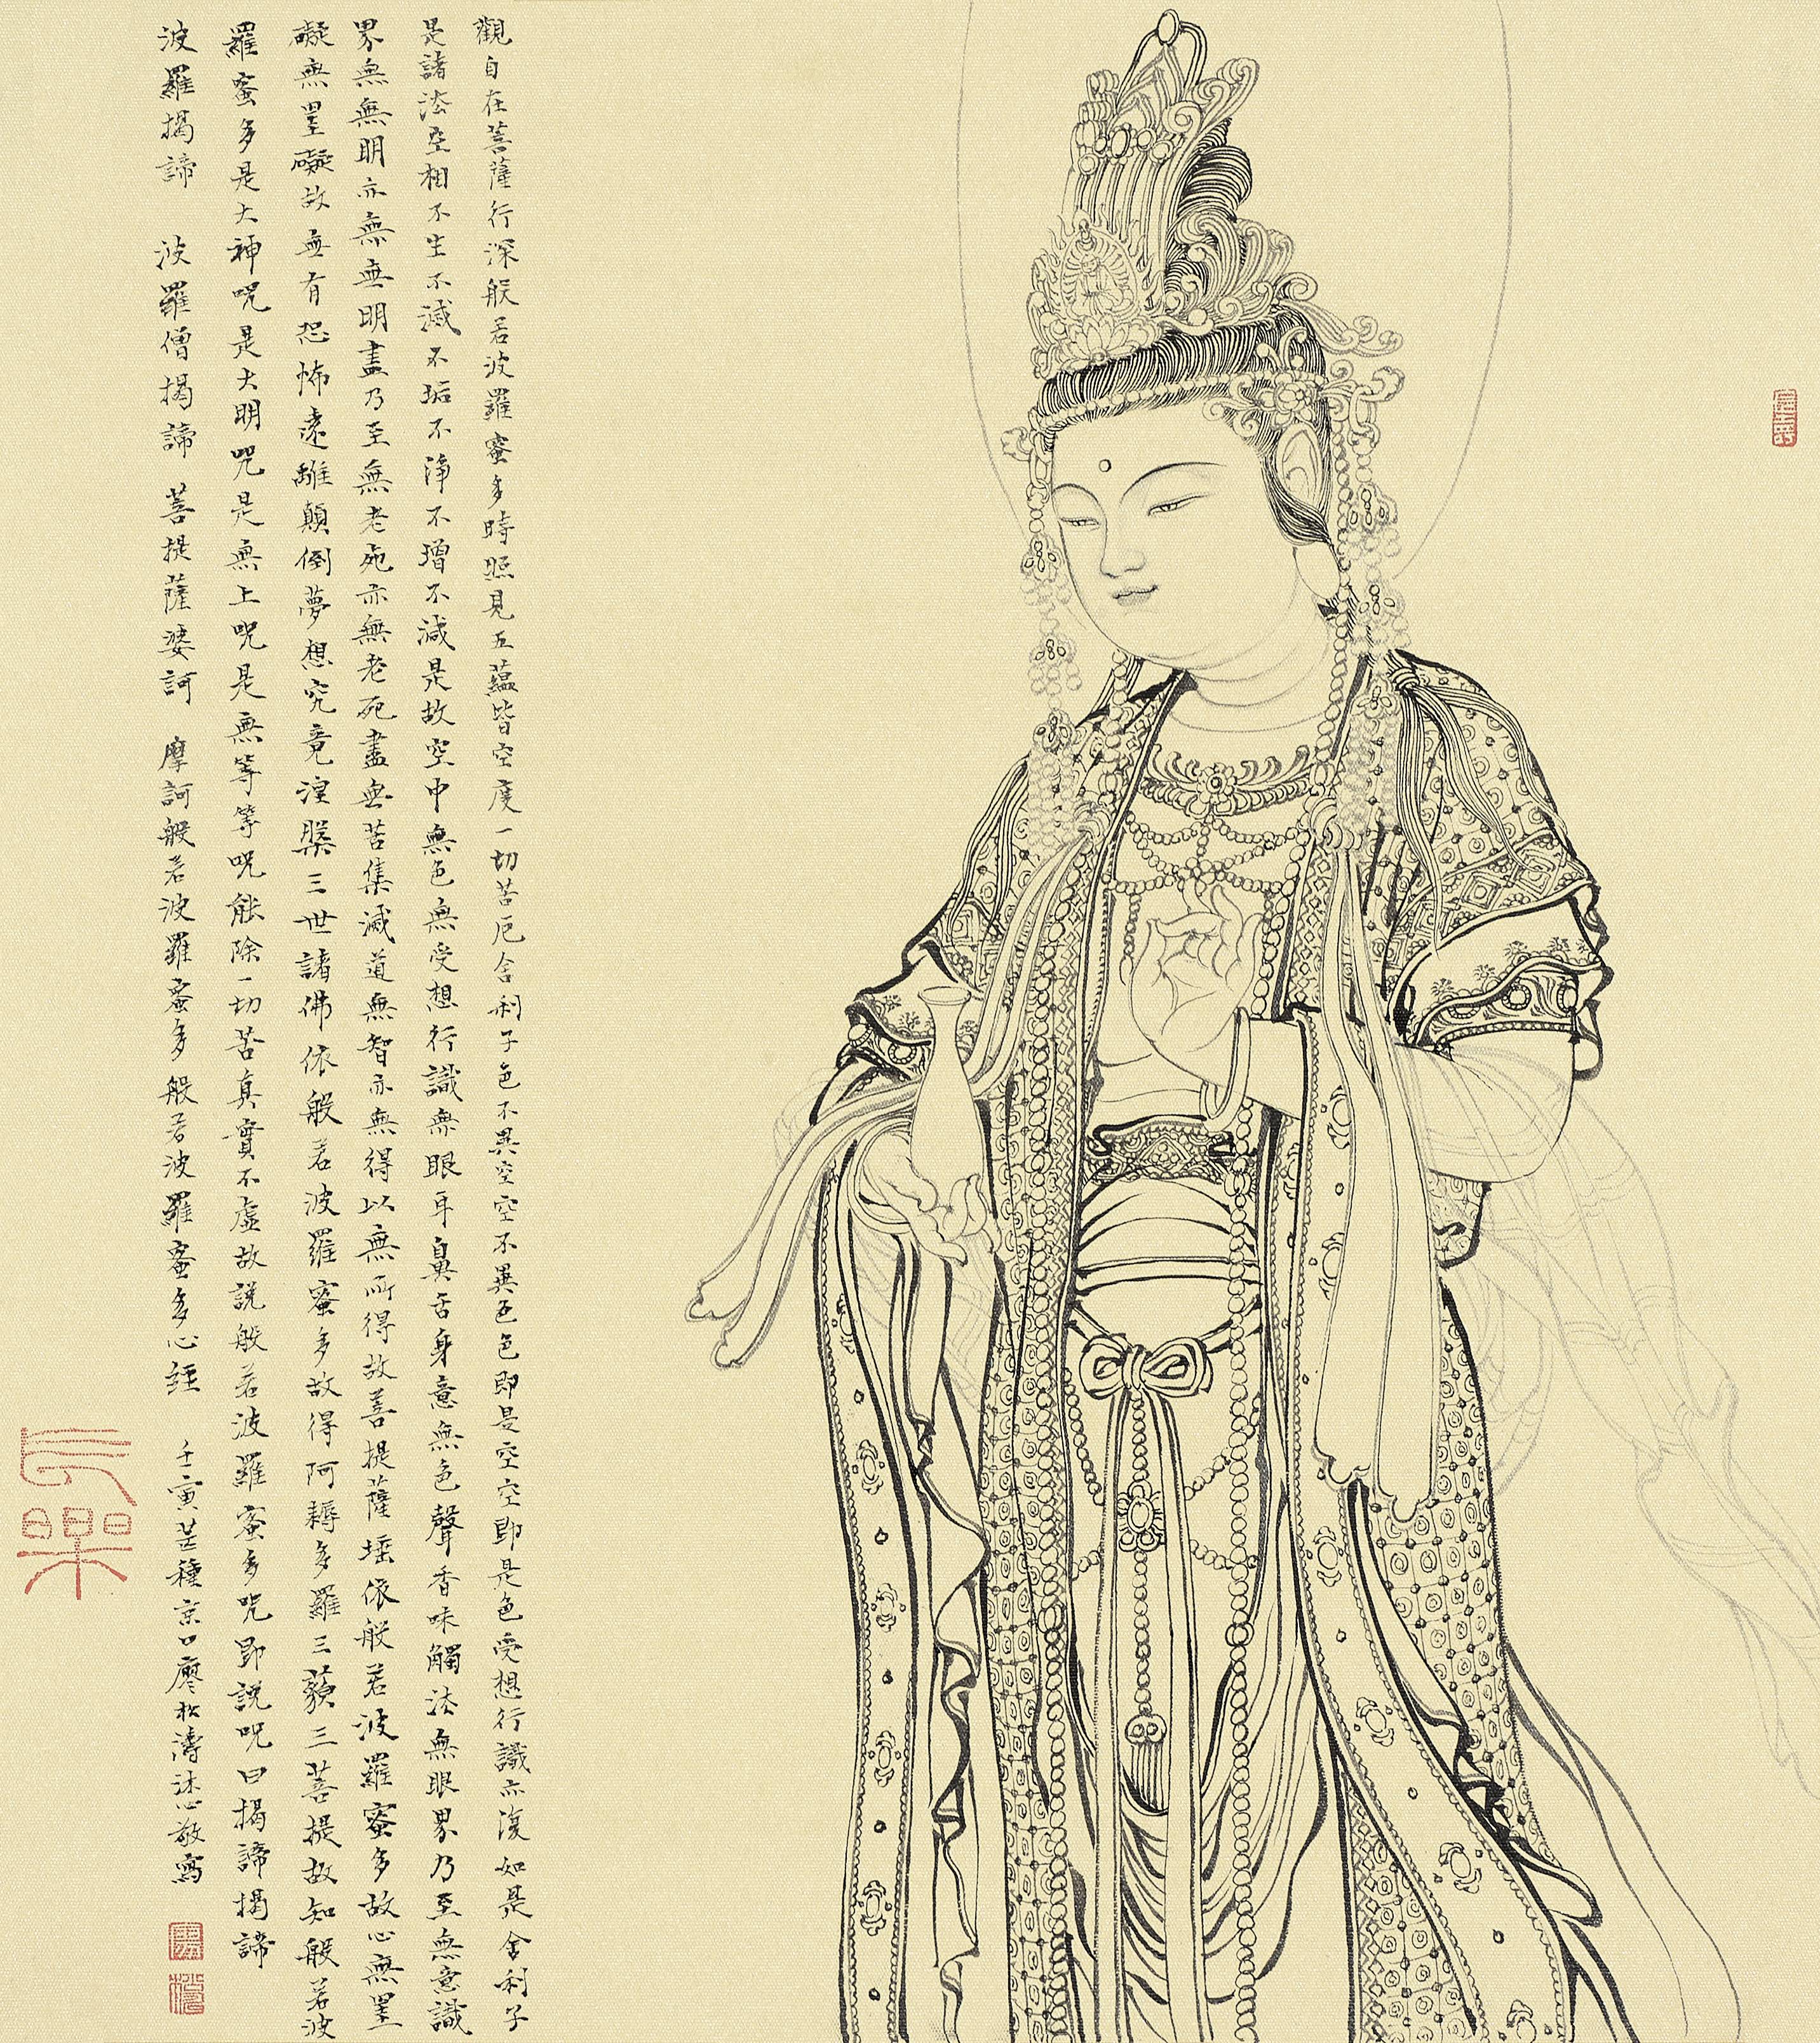 觀自在菩薩行深般若波羅蜜多時照見五蘊皆空度一切苦厄舍利子色不異空空不異色色即是空空即是色受想行識亦復如是舍利子
是諸法空相不生不滅不垢不淨不增不減是故空中無色無受想行識無眼耳鼻舌身意無色聲香味觸法無眼界乃至無意識
界無無明亦無無明盡乃至無老死亦無老死盡無苦集滅道無智亦無得以無所得故菩提薩埵依般若波羅蜜多故心無罣
礙無罣礙故無有恐怖遠離顛倒夢想究竟涅槃三世諸佛依般若波羅蜜多故得阿耨多羅三藐三菩提故知般若波
羅蜜多是大神咒是大明咒是無上咒是無等等咒能除一切苦真實不虛故說般若波羅蜜多咒即說咒曰揭諦揭諦
波羅揭諦 波羅僧揭諦 菩提薩婆訶 摩訶般若波羅蜜多般若波羅蜜多心經 壬寅芒種京口廖松濤沐心敬寫
長樂